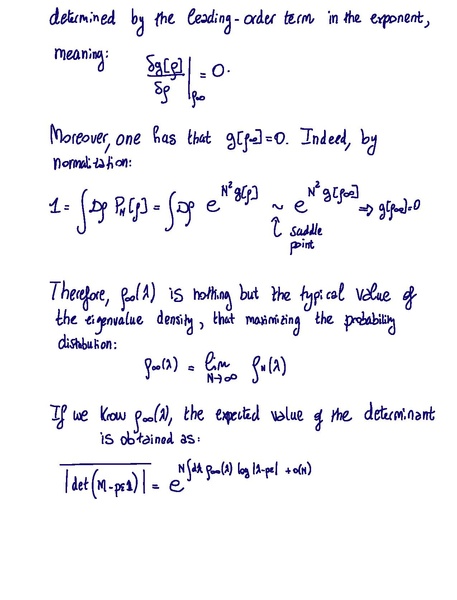 determined by the leading-order term in the exponent,
meaning:
δg[ρ]/δρ |ρ∞ = 0.
Moreover, one has that g[ρ∞]=0. Indeed, by
normalization:
1 = ∫Dρ P_N[ρ] = ∫Dρ e^{N² g[ρ]} ~ e^{N² g[ρ∞]} ⇒ g[ρ∞]=0
saddle
point
Therefore, ρ∞(λ) is nothing but the typical value of
the eigenvalue density, that maximizing the probability
distribution:
ρ∞(λ) = lim_{N→∞} ρ_N(λ)
If we know ρ∞(λ), the expected value of the determinant
is obtained as:
|det(M-pε1)| = e^{N∫dλ ρ∞(λ) log|λ-pε| + o(N)}